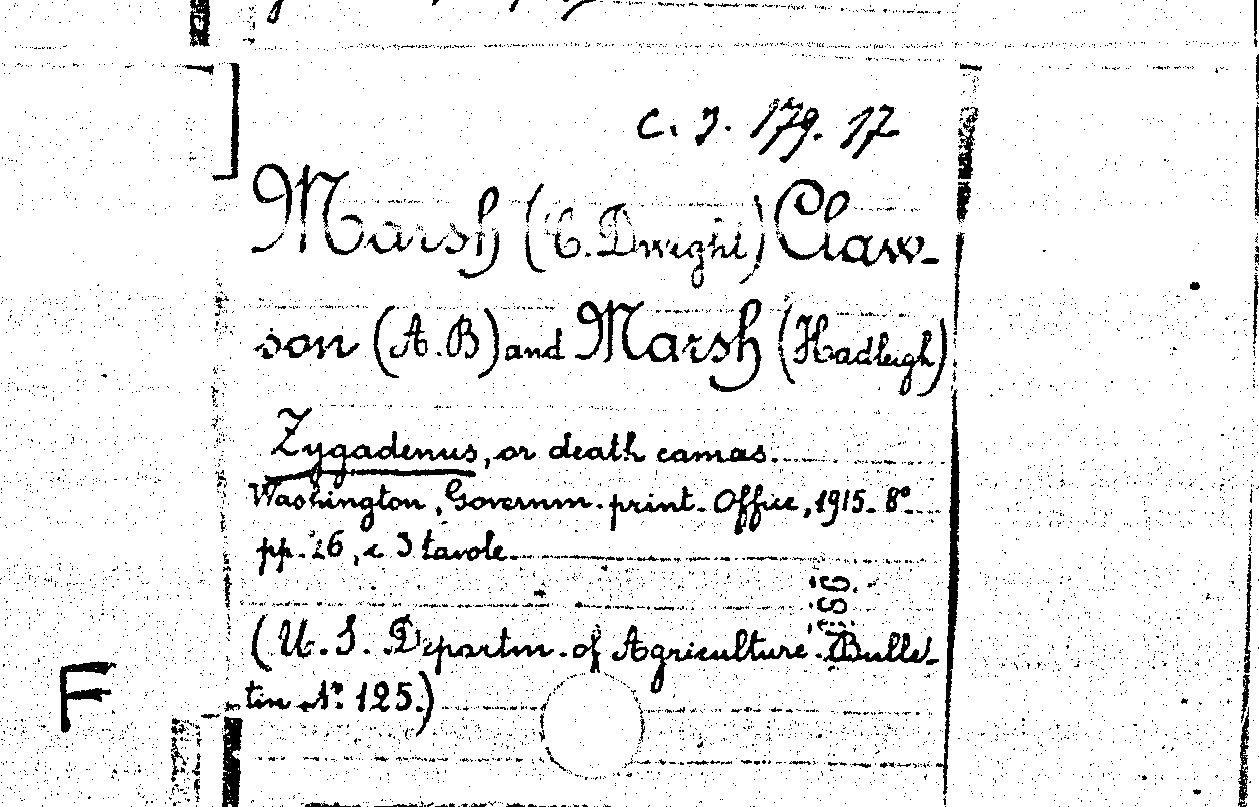 C. 9. 179. 17
Marsh (C. Dwight) Claw-
son (A. B) and Marsh (Hadleigh)
Zygadenus, or death camas.
Washington, Governm. print. Office, 1915. 8º
pp. 26, c 3 tavole.
(U. S. Departm. of Agriculture. Bulle-
tin Nº 125.)
F